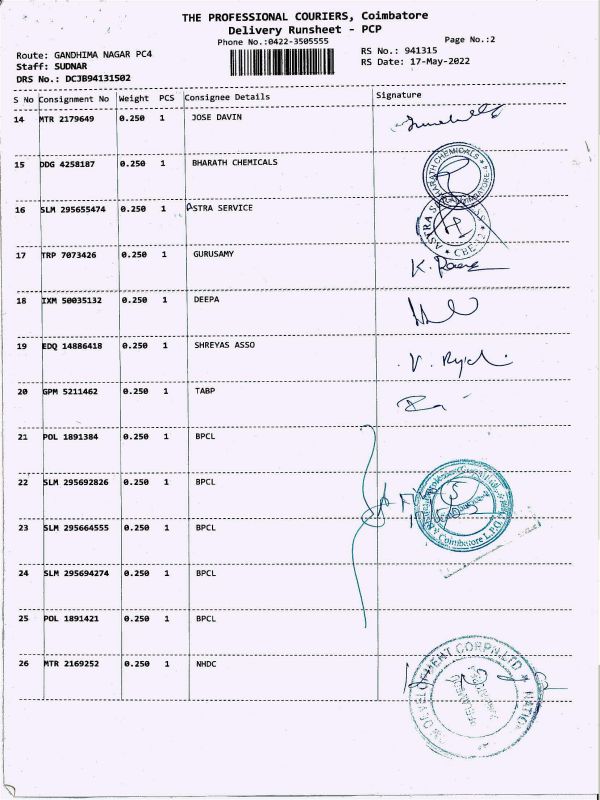 THE PROFESSIONAL COURIERS, Coimbatore
Delivery Runsheet - PCP
Phone No.:0422-3505555
Page No.:2
Route: GANDHIMA NAGAR PC4
RS No.: 941315
Staff: SUDNAR
RS Date: 17-May-2022
DRS No.: DCJB94131502
S No Consignment No Weight PCS Consignee Details Signature
14 MTR 2179649 0.250 1 JOSE DAVIN
15 DDG 4258187 0.250 1 BHARATH CHEMICALS
BHARATH CHEMICALS
16 SLM 295655474 0.250 1 ASTRA SERVICE
ASTRA CBE-12
17 TRP 7073426 0.250 1 GURUSAMY
18 IXM 50035132 0.250 1 DEEPA
19 EDQ 14886418 0.250 1 SHREYAS ASSO
20 GPM 5211462 0.250 1 TABP
21 POL 1891384 0.250 1 BPCL
22 SLM 295692826 0.250 1 BPCL
23 SLM 295664555 0.250 1 BPCL
Coimbatore L.P.G.
24 SLM 295694274 0.250 1 BPCL
25 POL 1891421 0.250 1 BPCL
26 MTR 2169252 0.250 1 NHDC
DEVELOPMENT CORPN.LTD